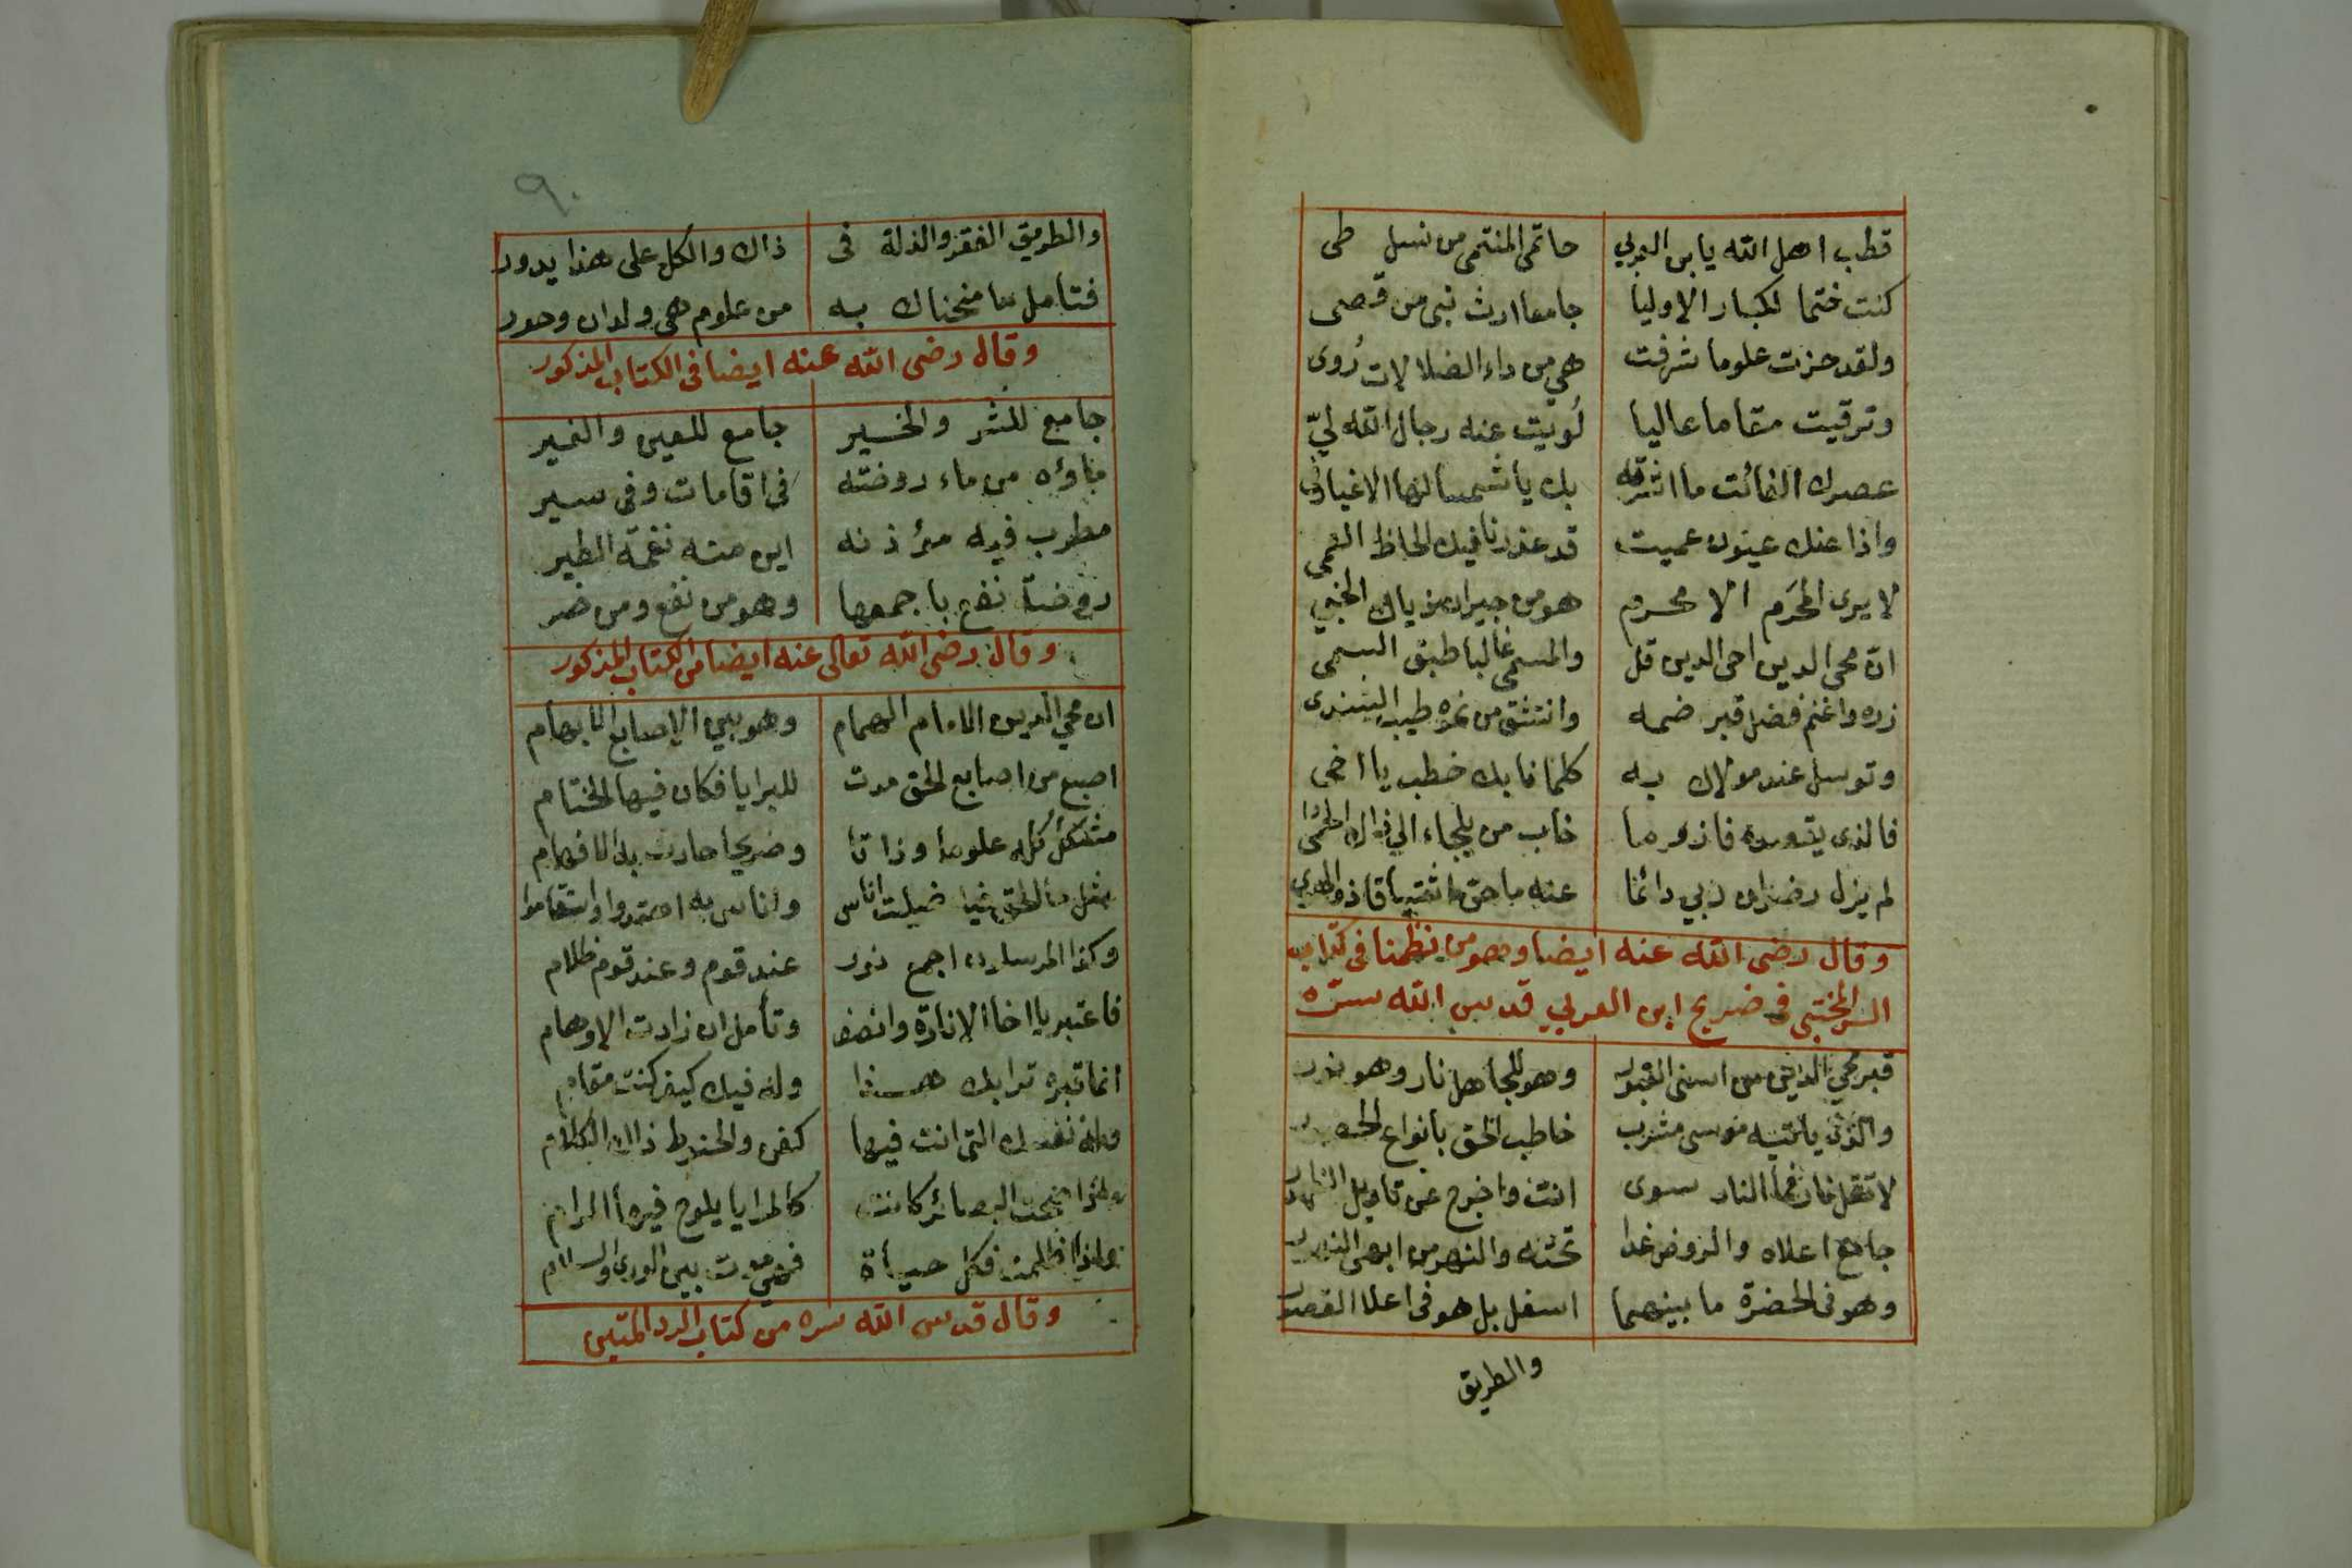 قطب اهل الله يا بن العربي حاتمى المنتمى من نسل طى
كنت ختما لكبار الاوليا جامعا ارث نبى من قصى
ولقد حزت علوما شرفت هي من داء الضلالات رُوى
وترقيت مقاما عاليا لُويت عنه رجال الله ليّ
عصرك الفائت ما اشرقه بك يا شمسا لها الاغيار فى
واذا عنك عيون عميت قد عذرنا فيك الحاظ العمى
لا يرى المحرَم الا محرم هو من جيران
انّ محى الدين احى الدين قل والمسمى غالبا طبق السمى
زره واغنم فضل قبر ضمه وانتشق من طيب
وتوسل عند مولاك به كلما نابك خطب يا اخى
فالذى يقصده فاز وما خاب من يلجاء الي ذاك
لم يزل رضوان ربي دائما عنه ما حق
وقال رضى الله عنه ايضا وهو من نظمنا فى كتاب
السر المختبى فى ضريح ابن العربي قدس الله سره
قبر محي الدين من اسنى القبور وهو للجاهل نار وهو نور
والذى ياتيه موسى مشرب خاطب الحق بأنواع
لا تقل فما النار سوى انت واخرج عن تاويل
جامع اعلاه والروض غدا تحته والنهر من ابهى
وهو فى الحضرة ما بينهما اسفل بل هو فى اعلا القصور
والطريق
٩٠
والطريق الفقر والذلة فى ذاك والكل على هذا يدور
فتامل ما منحناك به من علوم هى ولدان وحور
وقال رضى الله عنه ايضا فى الكتاب المذكور
جامع للشر والخير جامع للعين والغير
ماؤه من ماء روضته فى اقامات وفى سير
مطرب فيه مؤذنه اين منه نغمة الطير
روضة نفع باجمعها وهو من نفع ومن ضر
وقال رضى الله تعالى عنه ايضا من الكتاب المذكور
ان محي الدين الامام الهمام وهو بين الاصابع الابهام
اصبع من اصابع الحق مدت للبرايا فكان فيها الختام
مشكل كله علوما وذاتا وضريحا حارت به الافهام
مثل ما الحق ضلت اناس واناس به اهتدوا واستقاموا
وكذا المرسلون اجمع نور عند قوم وعند قوم ظلام
فاعتبر يا اخا الانارة وانصف وتأمل ان زادت الاوهام
انما قبره ترابك هذا وله فيك كيف كنت مقام
نفسك التى انت فيها كفن والحنوط ذاك الكلام
البصائر كانت كالمرايا يلوح فيها المرام
اظلمت فكل حياة فهي موت بين الورى والسلام
وقال قدس الله سره من كتاب الرد المتين